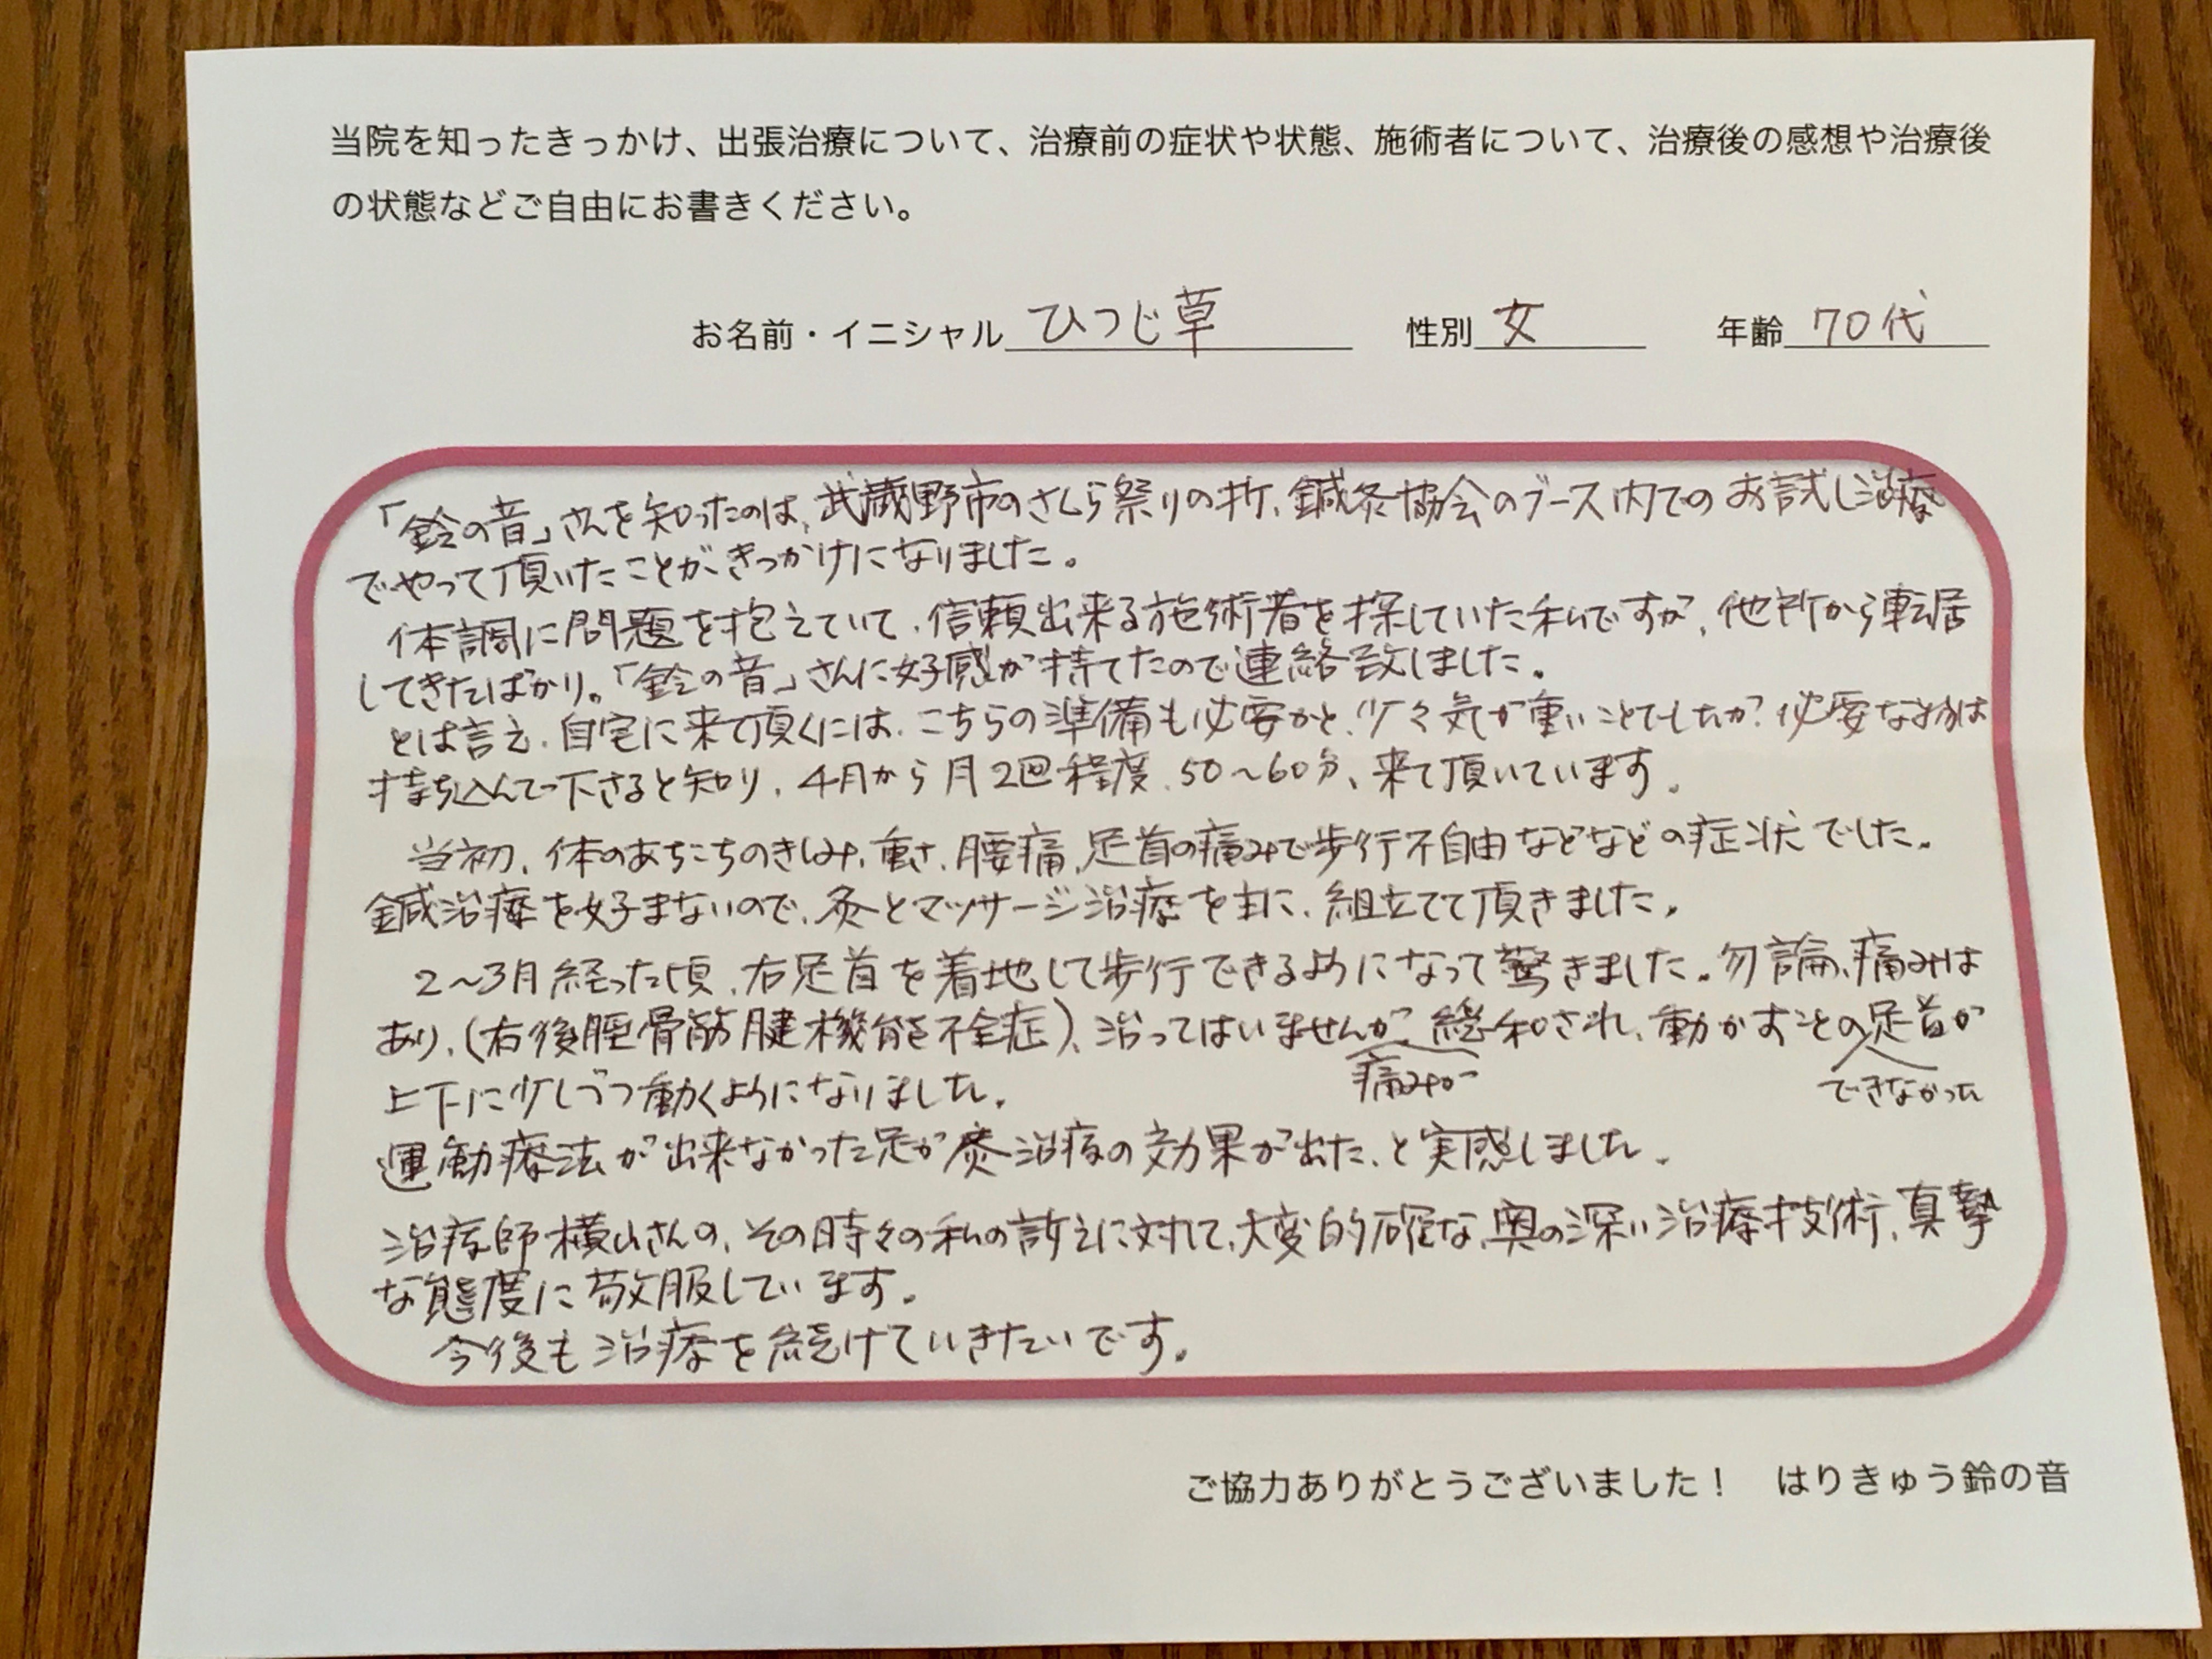 当院を知ったきっかけ、出張治療について、治療前の症状や状態、施術者について、治療後の感想や治療後
の状態などご自由にお書きください。
お名前・イニシャル ひつじ草 性別 女 年齢 70代
「鈴の音」さんを知ったのは、武蔵野市のさくら祭りの折、鍼灸協会のブース内でのお試し治療
でやって頂いたことがきっかけになりました。
体調に問題を抱えていて、信頼出来る施術者を探していた私ですが、他所から転居
してきたばかり。「鈴の音」さんに好感が持てたので連絡致しました。
とは言え、自宅に来て頂くには、こちらの準備も必要かと、少々気が重いことでしたが、必要な物は
持ち込んで下さると知り、4月から月2回程度、50〜60分、来て頂いています。
当初、体のあちこちのきしみ、重さ、腰痛、足首の痛みで歩行不自由などなどの症状でした。
鍼治療を好まないので、灸とマッサージ治療を主に、組立てて頂きました。
2〜3月経った頃、右足首を着地して歩行できるようになって驚きました。勿論、痛みは
あり、(右後脛骨筋腱機能不全症)、治ってはいませんが、痛みが緩和され、動かすことのできなかった足首が
上下に少しづつ動くようになりました。
運動療法が出来なかった足が灸治療の効果が出た、と実感しました。
治療師横山さんの、その時々の私の訴えに対して、大変的確な、奥の深い治療技術、真摯
な態度に敬服しています。
今後も治療を続けていきたいです。
ご協力ありがとうございました！ はりきゅう鈴の音